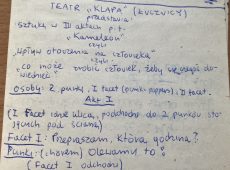 TEATR „KLAPA" (KUCZNICY)
przedstawia:
sztukę w III aktach p.t.
"Kameleon"
czyli
"wpływ otoczenia na człowieka"
czyli
"co może zrobić człowiek, żeby się czegoś do-
wiedzieć"
Osoby: 2 punki, 1 facet (punki, popersi), II facet.
Akt I
(I facet idzie ulicą, podchodzi do 2 punków sto-
jących pod ścianą)
Facet I: Przepraszam, która godzina?
Punki: (chórem) Olewamy to!
(Facet I odchodzi)